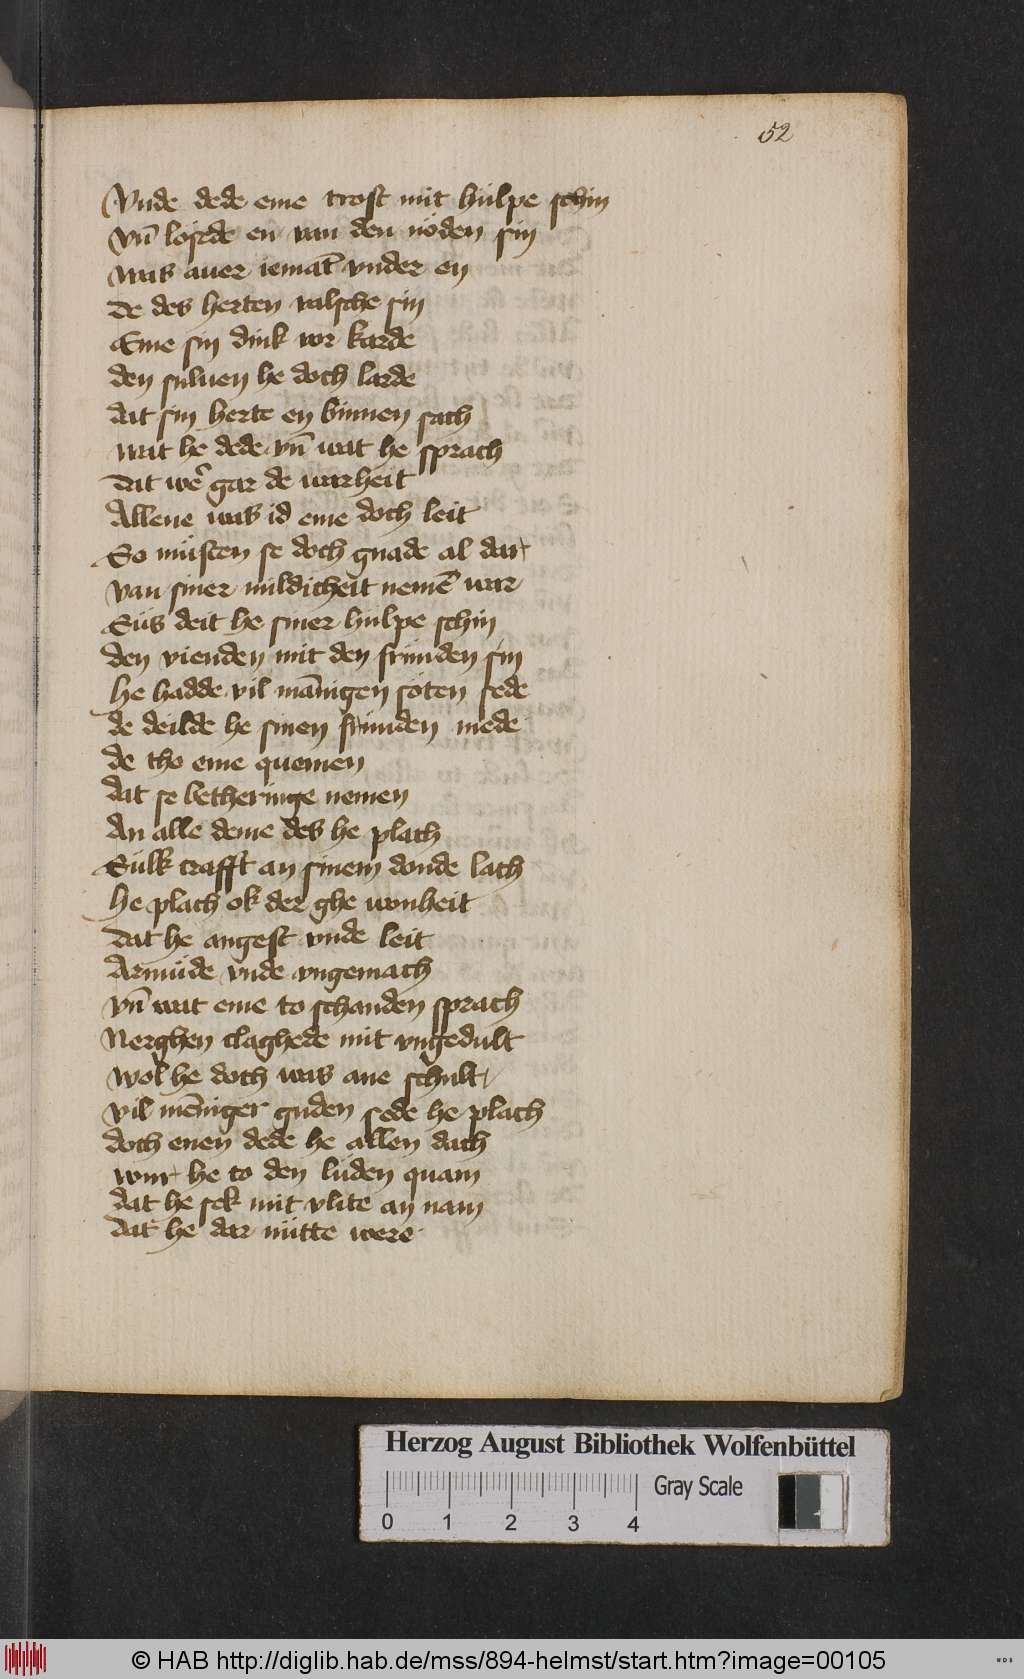 52
Vnde dede eme trost mit hülpe schin
Vn̄ lösede en van den nöden sin
was auer iemāt vnder en
De des herten valsche sin
Eme sin dink vor karde
den suluen he doch larde
dat sin herte en binnen sach
wat he dede vn̄ wat he sprach
Dat wē gar de warheit
Allene was id eme doch leit
So müsten se doch gnade al dar
van siner mildicheit nemē war
Süs deit he siner hulpe schin
den vienden mit den frunden sin
he hadde vil mānigen söten sede
de deilde he sinen frunden mede
de tho eme quemen
dat se betheringe nemen
An alle deme des he plach
Sülk crafft an sinem donde lach
he plach ok der ghe wonheit
Dat he angest vnde leit
Armüde vnde vngemach
vn̄ wat eme to schanden sprach
Nerghen claghede mit vngedult
wol he doch was ane schult
vil mēniger guden sede he plach
doch enen dede he allen dach
wur he to den lüden quam
dat he sek mit vlite an nam
dat he dar nütte were
Herzog August Bibliothek Wolfenbüttel
Gray Scale
0 1 2 3 4
© HAB http://diglib.hab.de/mss/894-helmst/start.htm?image=00105